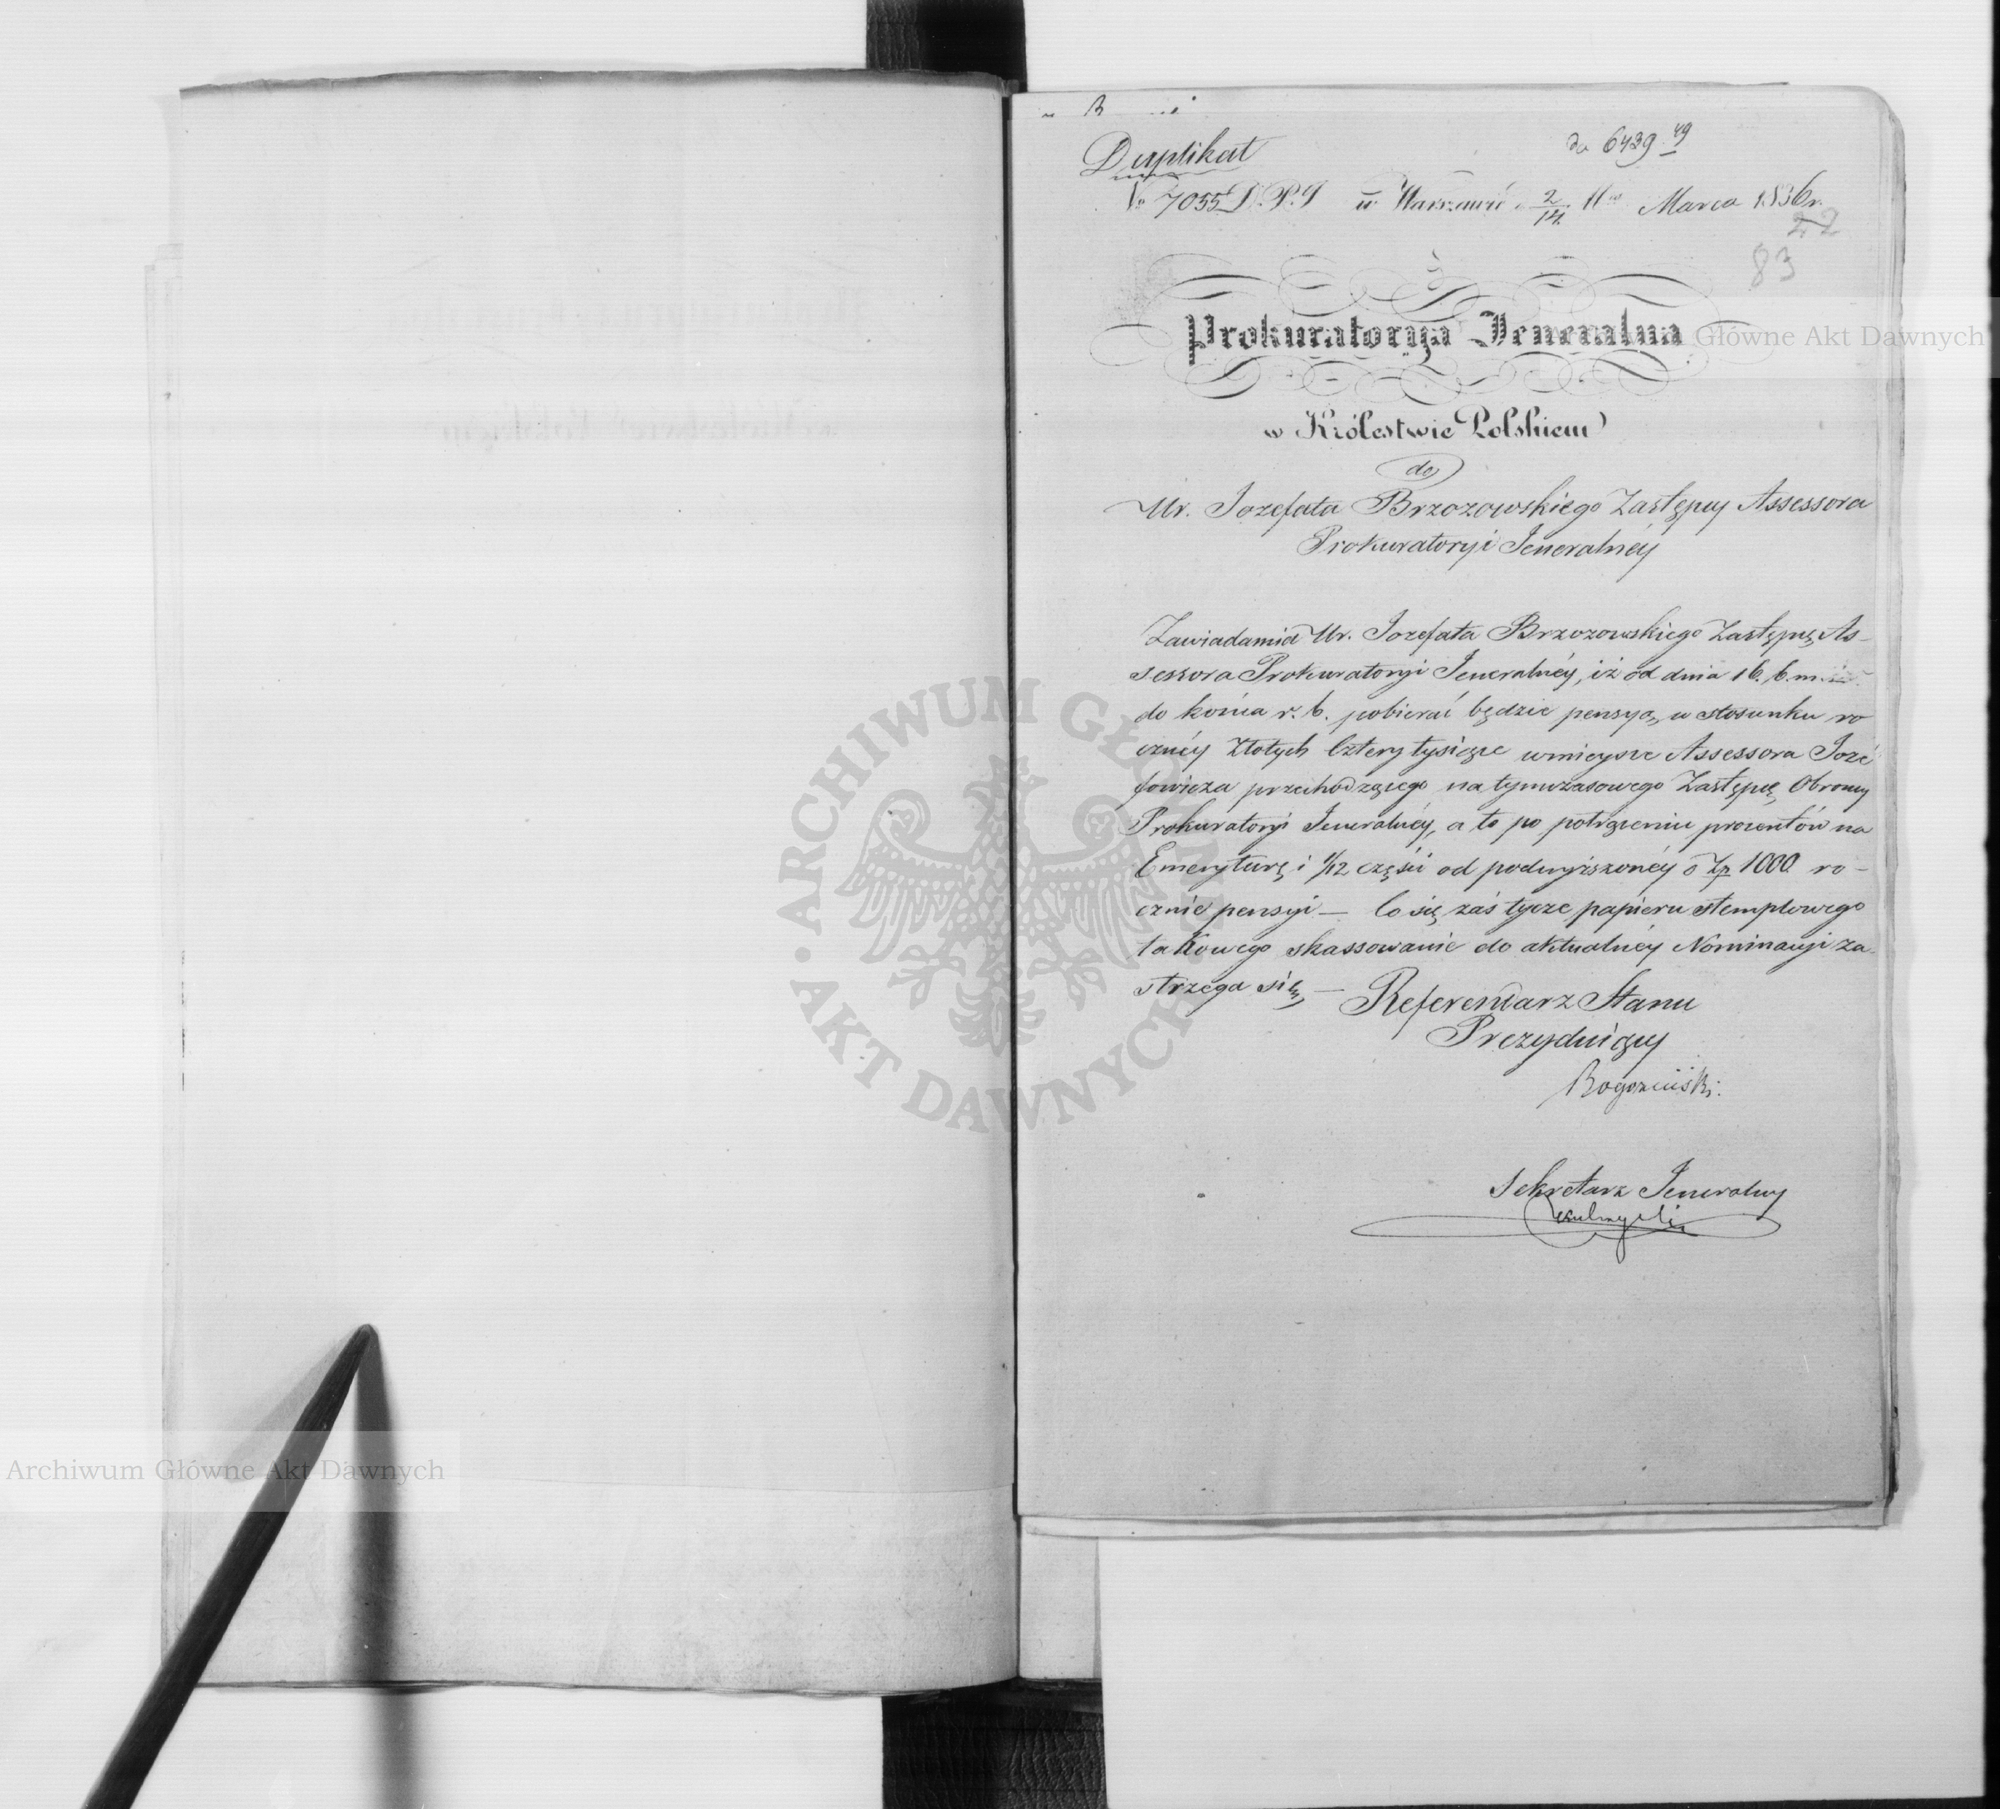 Duplikat
do 6439 49
No 7055 D.P.J w Warszawie 2/14 Marca 1836 r.
22
83
Prokuratorya Jeneralna
w Królestwie Polskiem
do
Ur. Jozefata Brzozowskiego Zastępcy Assessora
Prokuratoryi Jeneralnéy
Zawiadamia Ur. Jozefata Brzozowskiego Zastępcę As-
sessora Prokuratoryi Jeneralnéy, iż od dnia 16. b.m.
do końca r. b. pobierać będzie pensyą, w stosunku ro
cznéy Złotych Cztery tysiące wmieysce Assessora Joze
fowicza przechodzącego na tymczasowego Zastępcę Obrońcy
Prokuratoryi Jeneralnéy, a to po potrąceniu procentów na
Emeryturę i 1/12 części od podwyższonéy o Zp 1000 ro-
cznie pensyi — Co się zaś tycze papieru stemplowego
takowego skassowanie do aktualnéy Nominacyi za-
strzega się, —
Referendarz Stanu
Prezyduiący
Rogoziński.
Sekretarz Jeneralny
Archiwum Główne Akt Dawnych
Główne Akt Dawnych
ARCHIWUM GŁÓWNE AKT DAWNYCH